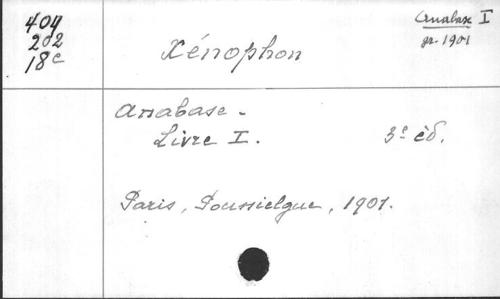 404
202
18c
Xénophon
Anabase I
gr. 1901
Anabase -
Livre I. 3e éd.
Paris, Poussielgue, 1901.